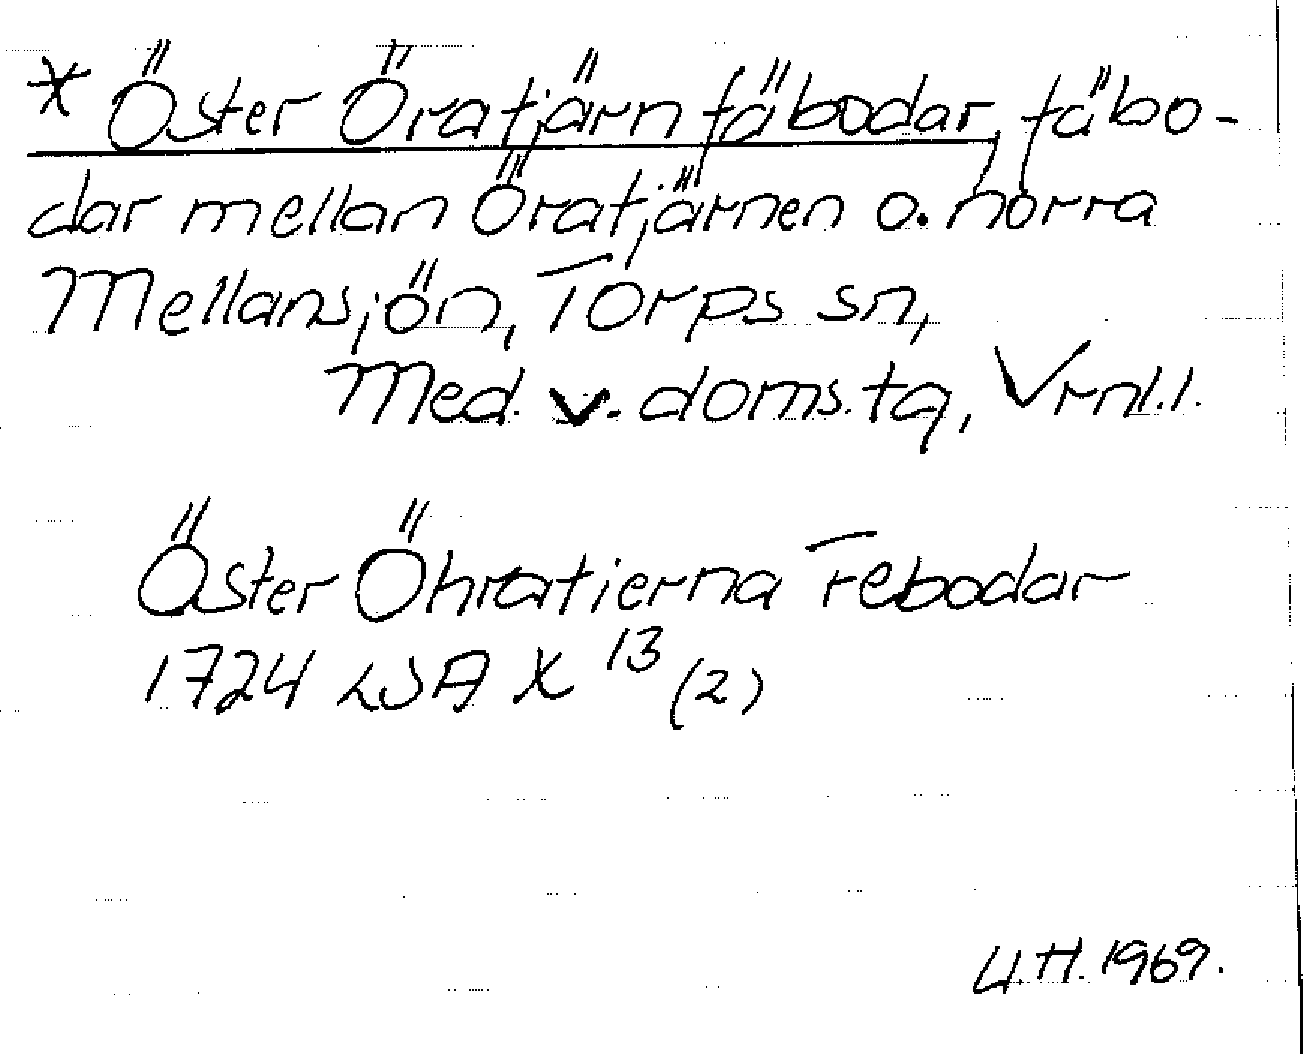 * Öster Öratjärn fäbodar, fäbo-
dar mellan Öratjärnen o. norra
Mellansjön, Torps sn,
Med. v. doms. tg, Vrnl. l.
Öster Öhratierna Febodar
1724 LSA X 13 (2)
U.H. 1969.